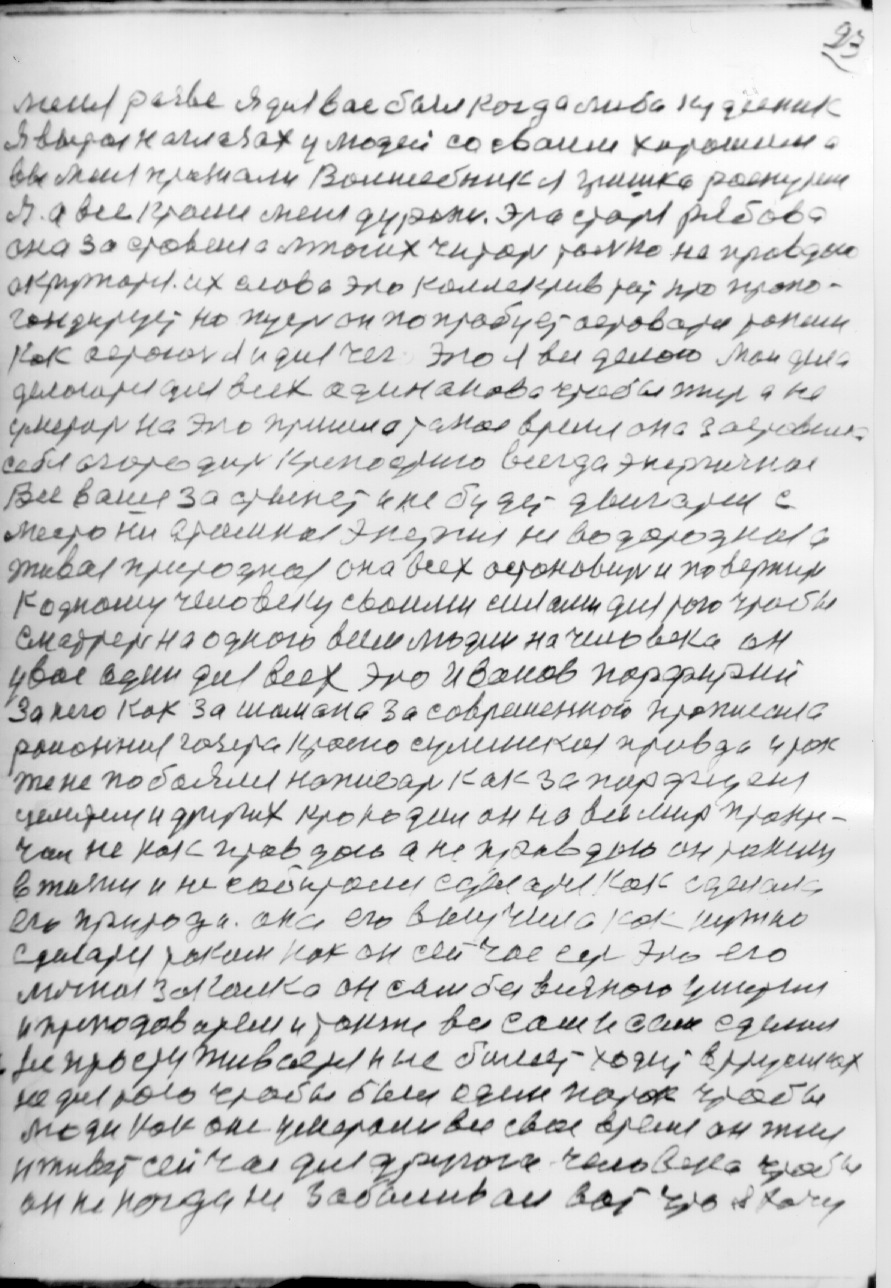 23
меня разве я для вас был когда либа худшеник
я вырос на глазах у людей со своим хорошим а
вы меня признали Волшебника Гришка роспутин
я. а все кроши меня дуроки. Эта старя рябова
она заставела многих читать только не правдою
окружатя. их слова это коллектив тут про пропо-
гондирует но пусть он попрабует оставатя таким
как остоюся я и для чег. Это я вы делою Мои дела
делоютя для всех одинакова чтобы жить а не
умерать на это пришло такое время она заставила
себя огородить крепостью всегда энергичное
Все ваше застынет и не будет двигатся с
место ни атомное энергия не водородная а
живая природная она всех остоновить и повернить
к одному человеку своими силами для того чтобы
сматрели на одного всем людям на человека он
у вас один для всех Это Иванов Порфирий
за него как за шомана за современного прописала
районная газета Красно сулинская правда и так
же не побоялся написать как за порфирия
целителя и других крокодил он на весь мир
не как правдою а не правдою он таким
в жизни и не собирался сделатя как сделала
его природа. она его выучила как нужно
сделатя таким как он сейчас есть Это его
личная закалка он сам без всякого
и преподователя и также все сам и сам сделал
не простуживается и не болеет ходит в трусиках
не для того чтобы был один порок чтобы
люди как оне умерали все свое время он жил
и живет сей час для другога человека чтобы
он не когда не заболивал вот что я хочу